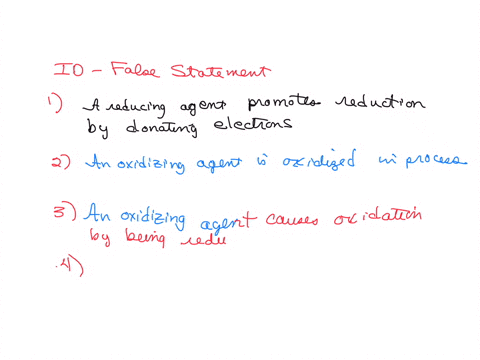 ID - False Statement
1) A reducing agent promotes reduction
by donating electrons
2) An oxidizing agent is oxidized in process
3) An oxidizing agent causes oxidation
by being redu
4)